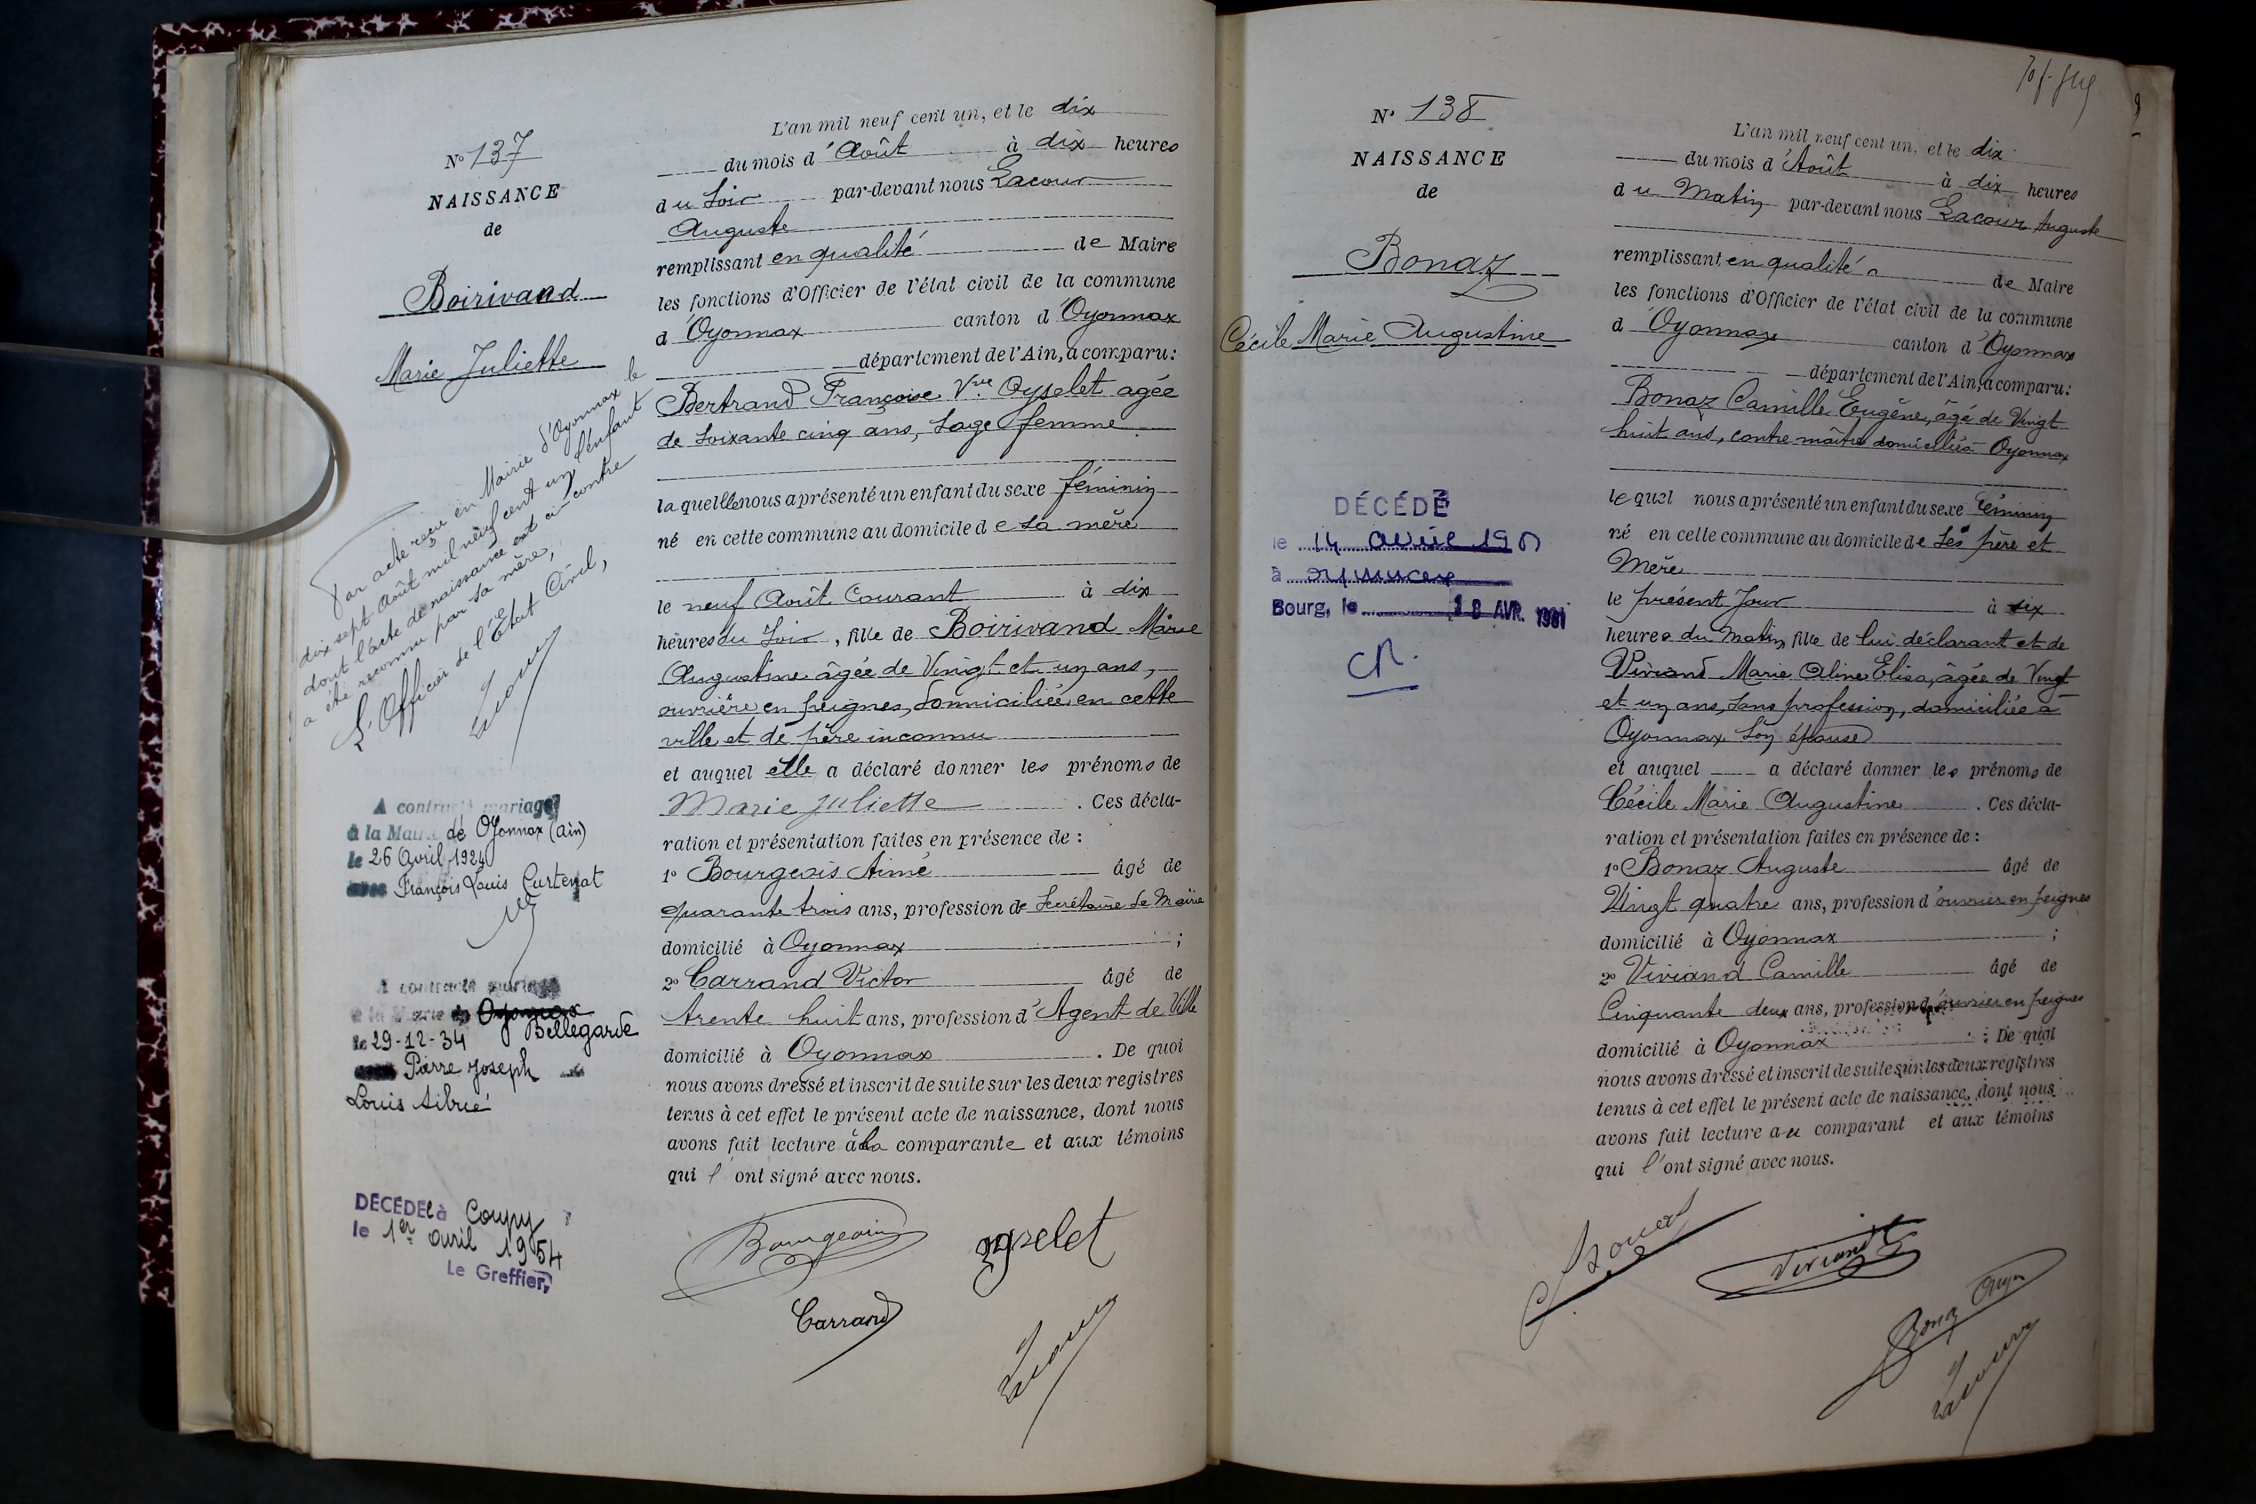 N° 137
NAISSANCE
de
Boirivand
Marie Juliette
Par acte reçu en Mairie d'Oyonnax le
dix sept Août mil neuf cent un l'enfant
dont l'acte de naissance est ci-contre
a été reconnu par sa mère,
L'Officier de l'Etat Civil,
Lacour
A contracté mariage
à la Mairie de Oyonnax (Ain)
le 26 Avril 1924
avec François Louis Curtenat
A contracté mariage
à la Mairie de Oyonnax
Bellegarde
le 29-12-34
avec Pierre Joseph
Louis
DÉCÉDÉE à Coupy
le 1er avril 1954
Le Greffier,
L'an mil neuf cent un, et le dix
du mois d'Août à dix heures
du Soir par-devant nous Lacour
Auguste
remplissant en qualité de Maire
les fonctions d'Officier de l'état civil de la commune
d'Oyonnax canton d'Oyonnax
département de l'Ain, a comparu:
Bertrand Françoise Vve Oyselet agée
de soixante cinq ans, sage femme
laquelle nous a présenté un enfant du sexe féminin
né en cette commune au domicile de sa mère
le neuf Août Courant à dix
heures du Soir, fille de Boirivand Marie
Augustine âgée de Vingt et un ans,
ouvrière en peignes, domiciliée en cette
ville et de père inconnu
et auquel elle a déclaré donner les prénoms de
Marie Juliette. Ces décla-
ration et présentation faites en présence de :
1° Bourgeois Aimé âgé de
quarante trois ans, profession de Secrétaire de Mairie
domicilié à Oyonnax ;
2° Carrand Victor âgé de
trente huit ans, profession d'Agent de Ville
domicilié à Oyonnax. De quoi
nous avons dressé et inscrit de suite sur les deux registres
tenus à cet effet le présent acte de naissance, dont nous
avons fait lecture à la comparante et aux témoins
qui l'ont signé avec nous.
Bourgeois
oyselet
Carrand
Lacour
N° 138
NAISSANCE
de
Bonaz
Cécile Marie Augustine
DÉCÉDÉ
le 14 avril 1981
à oyonnax
Bourg, le 18 AVR. 1981
CR.
L'an mil neuf cent un, et le dix
du mois d'Août à dix heures
du Matin par-devant nous Lacour Auguste
remplissant en qualité de Maire
les fonctions d'Officier de l'état civil de la commune
d'Oyonnax canton d'Oyonnax
département de l'Ain, a comparu:
Bonaz Camille Eugène, âgé de Vingt
huit ans, contre maître domicilié à Oyonnax
lequel nous a présenté un enfant du sexe féminin
né en cette commune au domicile de ses père et
Mère
le présent Jour à six
heures du Matin, fille de lui déclarant et de
Viviand Marie Aline Elisa, âgée de Vingt
et un ans, sans profession, domiciliée à
Oyonnax son épouse
et auquel a déclaré donner les prénoms de
Cécile Marie Augustine. Ces décla-
ration et présentation faites en présence de :
1° Bonaz Auguste âgé de
Vingt quatre ans, profession d'ouvrier en peignes
domicilié à Oyonnax ;
2° Viviand Camille âgé de
Cinquante deux ans, profession d'ouvrier en peignes
domicilié à Oyonnax. De quoi
nous avons dressé et inscrit de suite sur les deux registres
tenus à cet effet le présent acte de naissance, dont nous
avons fait lecture au comparant et aux témoins
qui l'ont signé avec nous.
Viviand
Lacour